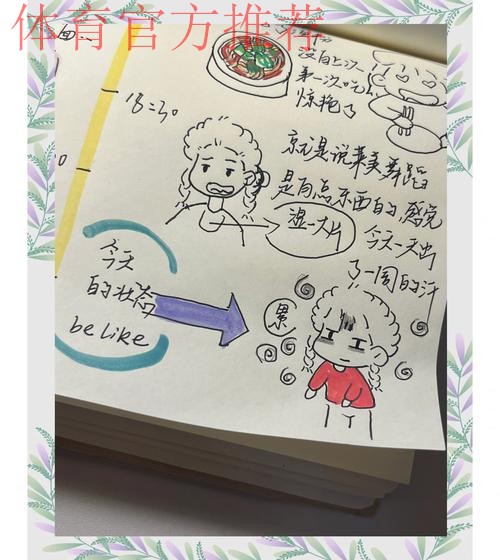 体育官方推荐
没自上次
第一次吃
惊艳了
18:30
就是说华美舞蹈
是有点东西的，感觉
今天一天出
了一周的汗
湿一大片
今天
的状态
be like
累